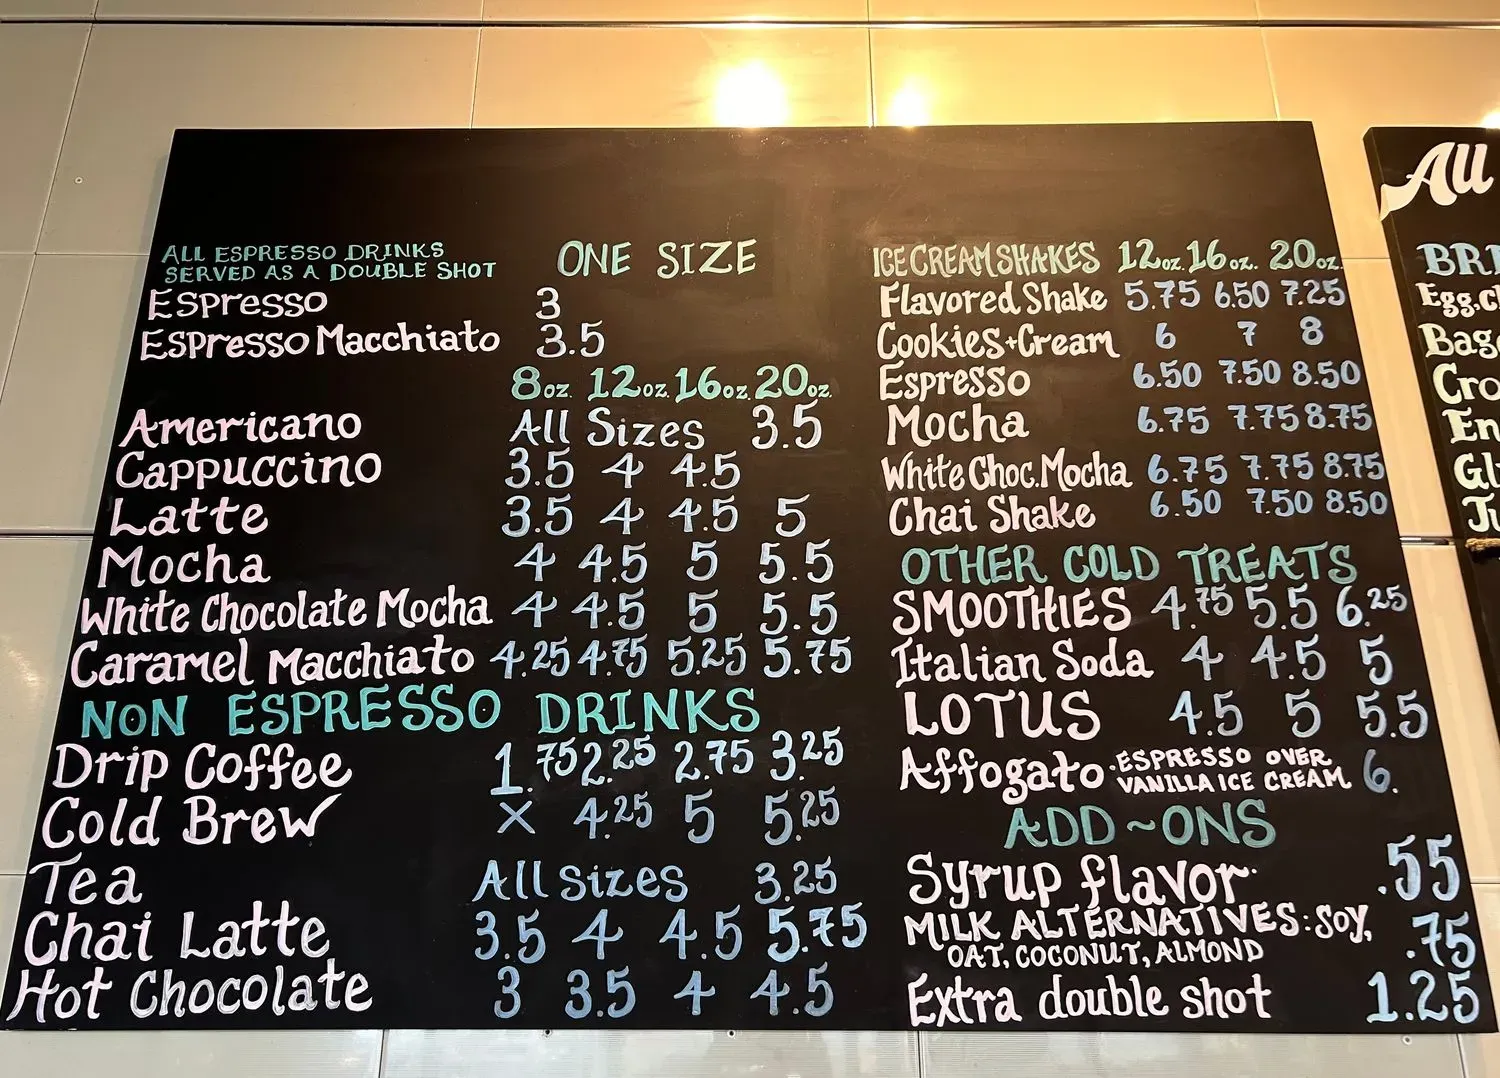 ALL ESPRESSO DRINKS
SERVED AS A DOUBLE SHOT ONE SIZE
Espresso 3
Espresso Macchiato 3.5
8oz. 12oz. 16oz. 20oz.
Americano All Sizes 3.5
Cappuccino 3.5 4 4.5
Latte 3.5 4 4.5 5
Mocha 4 4.5 5 5.5
White Chocolate Mocha 4 4.5 5 5.5
Caramel Macchiato 4.25 4.75 5.25 5.75
NON ESPRESSO DRINKS
Drip Coffee 1.75 2.25 2.75 3.25
Cold Brew X 4.25 5 5.25
Tea All sizes 3.25
Chai Latte 3.5 4 4.5 5.75
Hot Chocolate 3 3.5 4 4.5
ICE CREAM SHAKES 12oz. 16oz. 20oz.
Flavored Shake 5.75 6.50 7.25
Cookies+Cream 6 7 8
Espresso 6.50 7.50 8.50
Mocha 6.75 7.75 8.75
White Choc. Mocha 6.75 7.75 8.75
Chai Shake 6.50 7.50 8.50
OTHER COLD TREATS
SMOOTHIES 4.75 5.5 6.25
Italian Soda 4 4.5 5
LOTUS 4.5 5 5.5
Affogato · ESPRESSO OVER
VANILLA ICE CREAM 6.
ADD~ONS
Syrup flavor .55
MILK ALTERNATIVES: SOY,
OAT, COCONUT, ALMOND .75
Extra double shot 1.25
All
Egg,